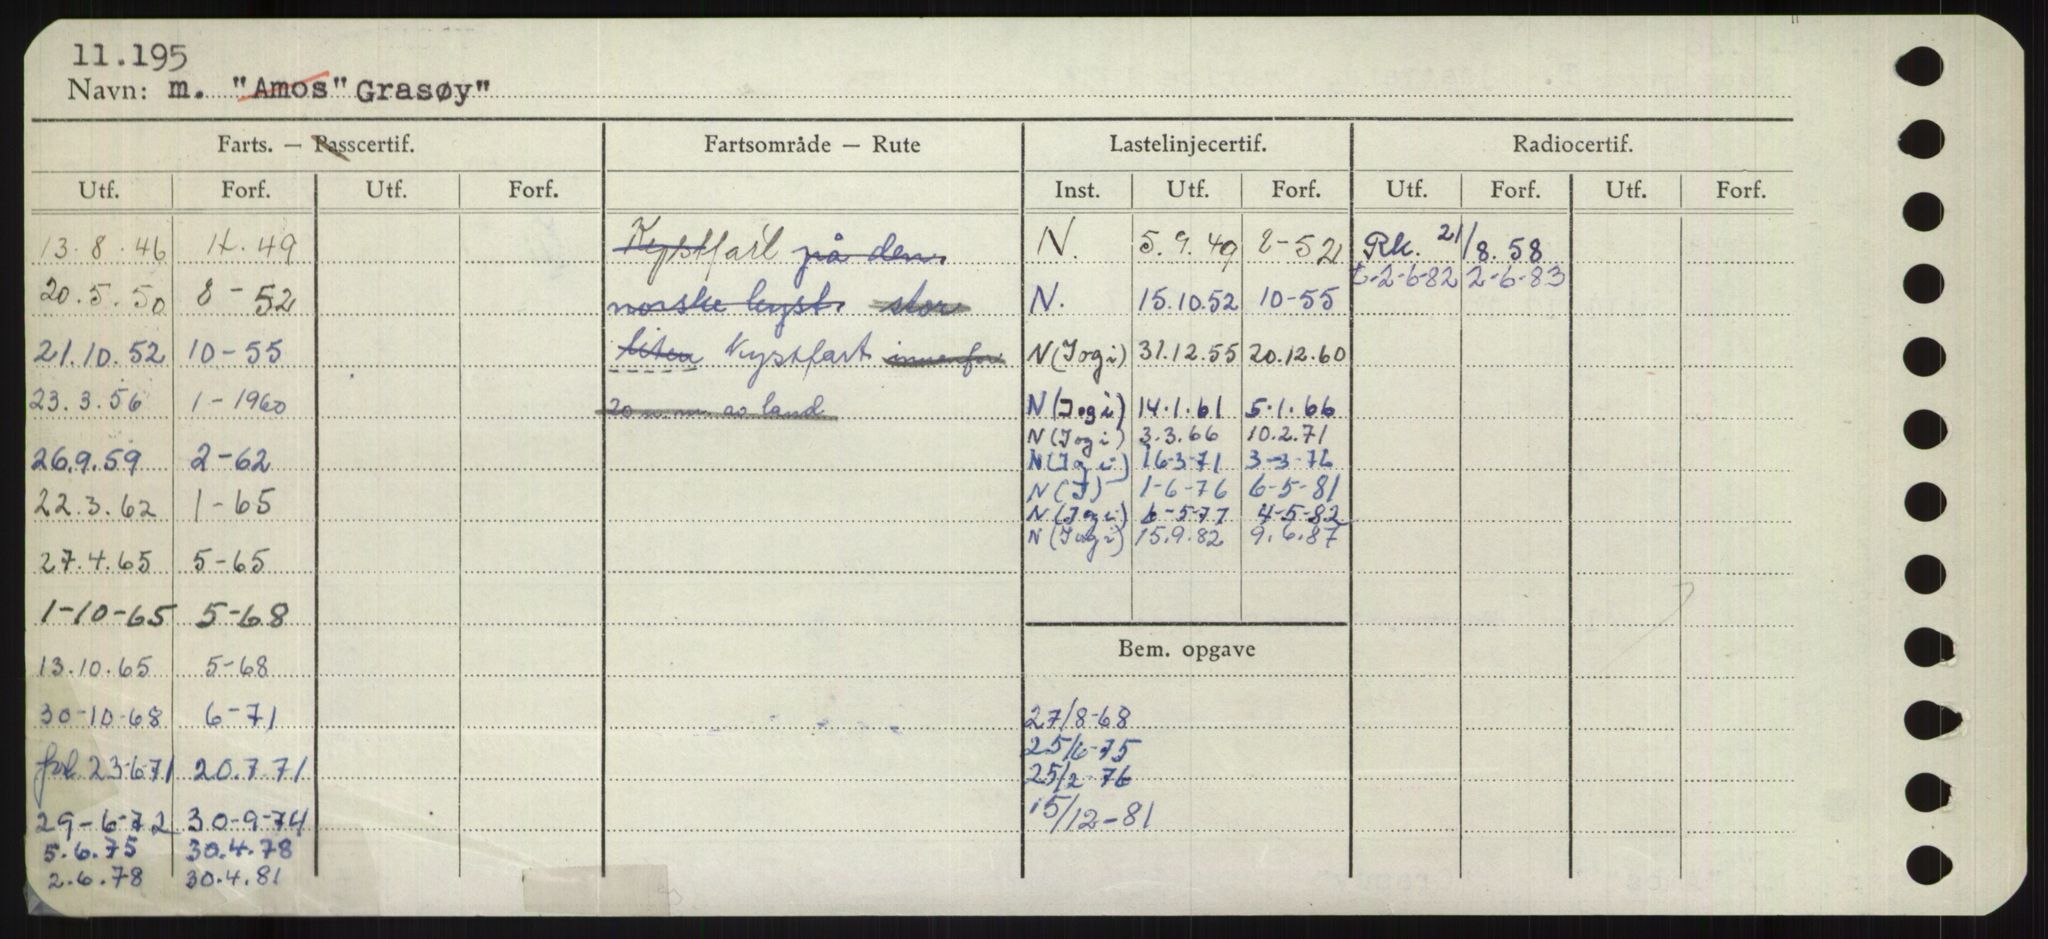 11.195
Navn: m. "Amos" Grasøy"
Farts. — Passcertif. Fartsområde — Rute Lastelinjecertif. Radiocertif.
Utf. Forf. Utf. Forf. Inst. Utf. Forf. Utf. Forf. Utf. Forf.
13.8.46 4.49 Kystfart på den N. 5.9.49 8-52 Rk. 21/8.58
2-6-82 2-6-83
20.5.50 8-52 norske kyst. stor N. 15.10.52 10-55
21.10.52 10-55 liten Kystfart innenfor N (Jog i) 31.12.55 20.12.60
23.3.56 1-1960 20 n.m. av land N (Jog i) 14.1.61 5.1.66
N (Jog i) 3.3.66 10.2.71
26.9.59 2-62 N (Jog i) 16-3-71 3-3-76
22.3.62 1-65 N (J) 1-6-76 6-5-81
N (Jog i) 6-5-77 4-5-82
N (Jog i) 15.9.82 9.6.87
27.4.65 5-65
1-10-65 5-68
Bem. opgave
13.10.65 5-68
30-10-68 6-71 27/8-68
25/6-75
fol. 23-6-71 20.7.71 25/2-76
29-6-72 30-9-74 15/12-81
5.6.75 30.4.78
2.6.78 30.4.81